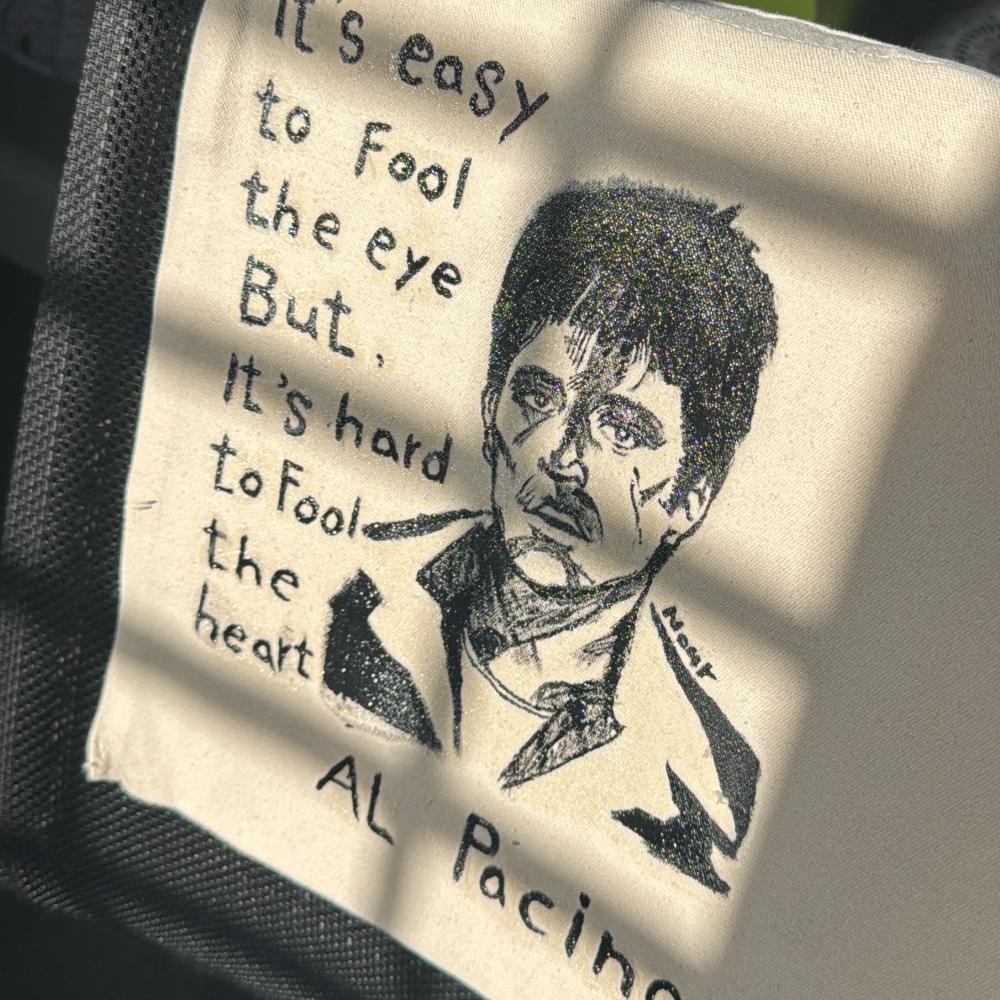 It's easy
to Fool
the eye
But,
It's hard
to Fool
the
heart
AL Pacino